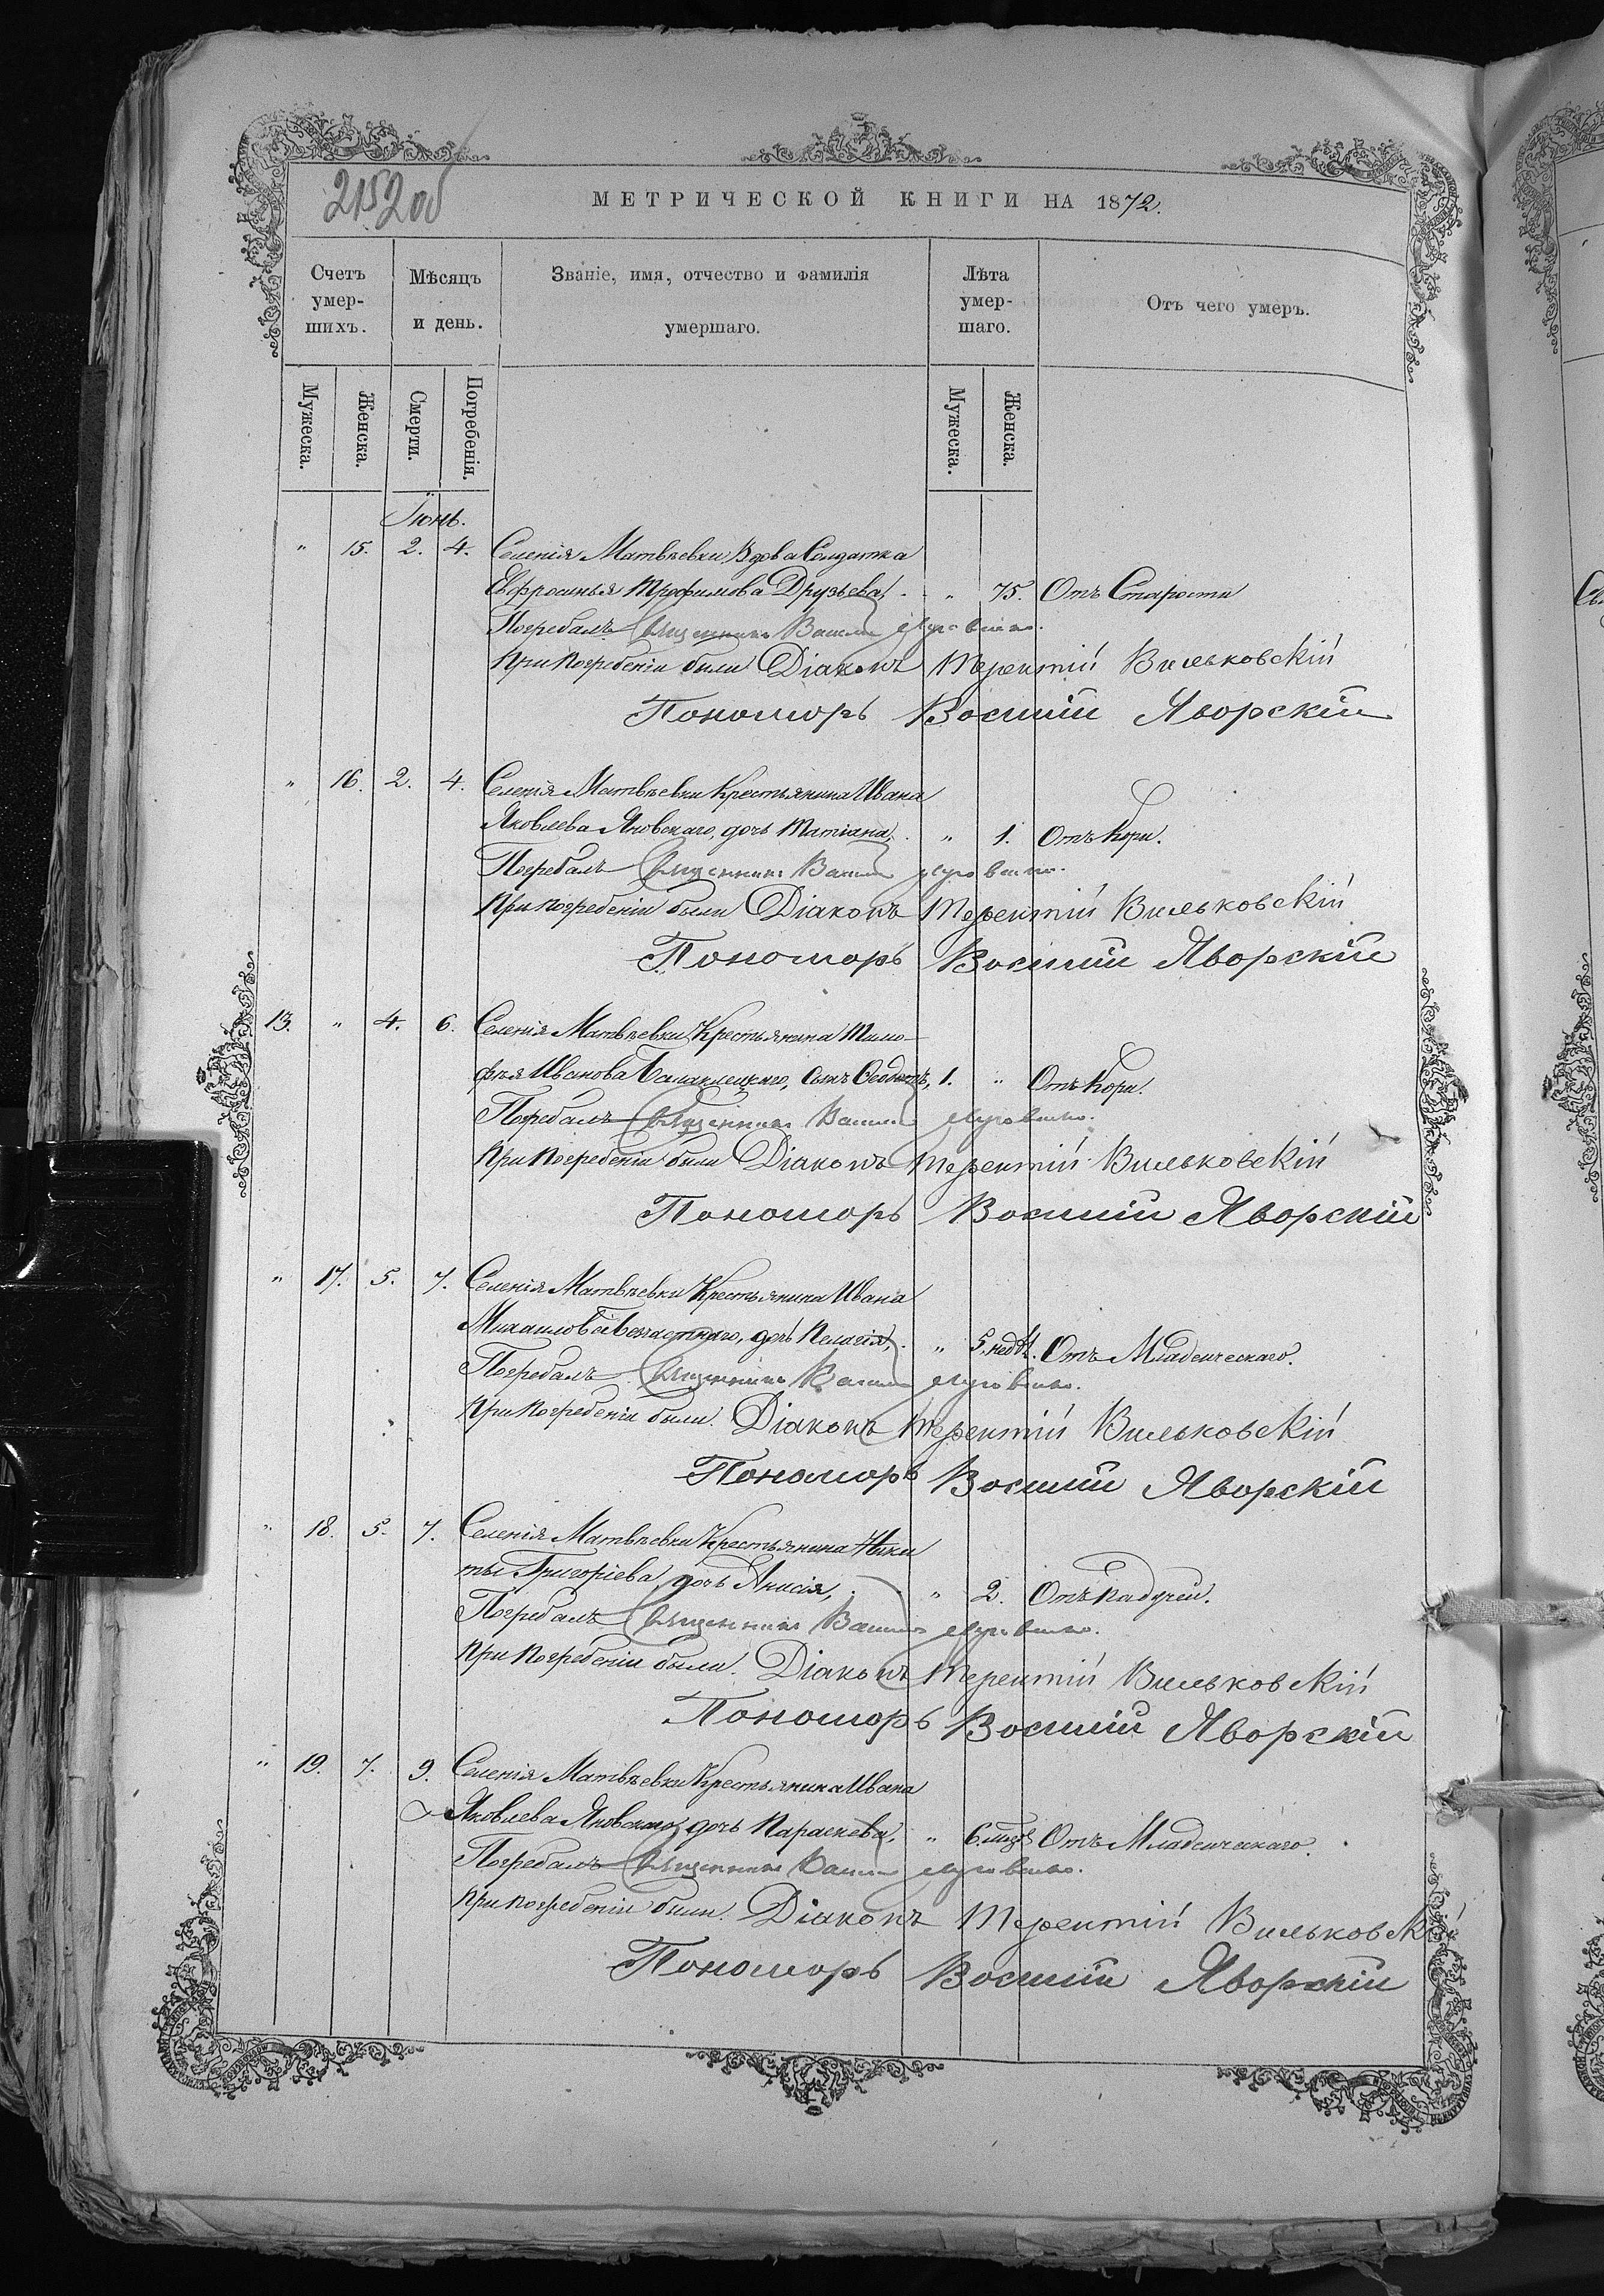 215 об
МЕТРИЧЕСКОЙ КНИГИ НА 1872.
Счетъ умер-шихъ.
Мѣсяцъ и день.
Званіе, имя, отчество и фамилія умершаго.
Лѣта умер-шаго.
Отъ чего умеръ.
Мужеска. Женска. Смерти. Погребенія. Мужеска. Женска.
Іюнь.
" 15. 2. 4. Селенія Матвѣевки Вдова Солдатка
Евфросинья Трофимова Друзьева. " 75. Отъ Старости
Погребалъ Священникъ Василій
При погребеніи были Діаконъ Терентій Вильковскій
Пономорь Восилій Яворскій
" 16. 2. 4. Селенія Матвѣевки Крестьянина Ивана
Яковлева Яновскаго, дочь Татіана. " 1. Отъ Кори.
Погребалъ Священникъ Василій
При погребеніи были Діаконъ Терентій Вильковскій
Пономорь Восилій Яворскій
13. " 4. 6. Селенія Матвѣевки Крестьянина Тимо-
фея Иванова Балаклецкаго, сынъ Ѳедотъ, 1. " Отъ Кори.
Погребалъ Священникъ Василій
При Погребеніи были Діаконъ Терентій Вильковскій
Пономорь Восилій Яворскій
" 17. 5. 7. Селенія Матвѣевки Крестьянина Ивана
Михаилова дочь Пелагія, " 5. недѣ. Отъ Младенческаго.
Погребалъ Священникъ Василій
При погребеніи были. Діаконъ Терентій Вильковскій
Пономорь Восилій Яворскій
" 18. 5. 7. Селенія Матвѣевки Крестьянина Ники
ты Григоріева, дочь Анисія, " 2. Отъ Падучей.
Погребалъ Священникъ Василій
При Погребеніи были. Діаконъ Терентій Вильковскій
Пономорь Восилій Яворскій
" 19. 7. 9. Селенія Матвѣевки Крестьянина Ивана
Яковлева Яновскаго, дочь Параскева, " 6. Отъ Младенческаго.
Погребалъ Священникъ Василій
При погребеніи были. Діаконъ Терентій Вильковскій
Пономорь Восилій Яворскій